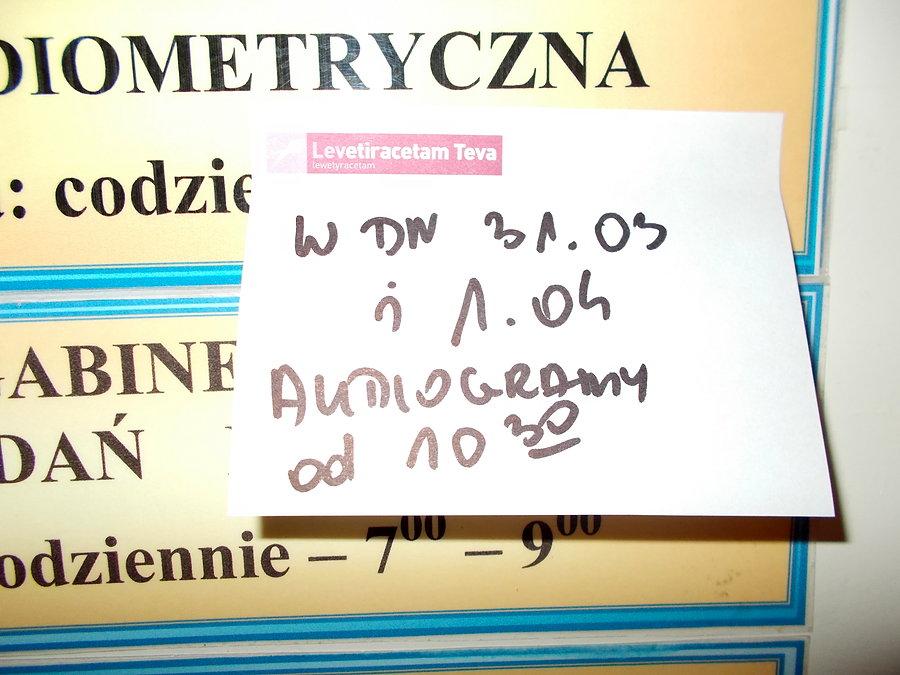 DIOMETRYCZNA
: codzie
Levetiracetam Teva
lewetyracetam
W DN 31.03
i 1.04
AUDIOGRAMY
od 10 30
GABINE
DAŃ
odziennie – 7 00 – 9 00